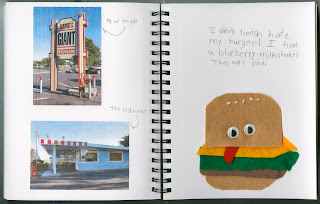 me at the sign
GIANT
The restaurant
I didn't finish hafe
my burger! I had
a blueberry milkshake!
They were good.